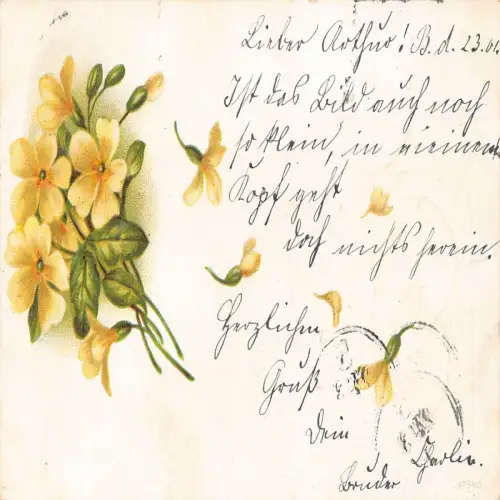 Lieber Arthur! B. d. 23.
Ist das Bild auch noch
so klein, in meinem
Kopf geht
doch nichts herein.
Herzlichen
Gruß
Dein
Bruder Charlie.